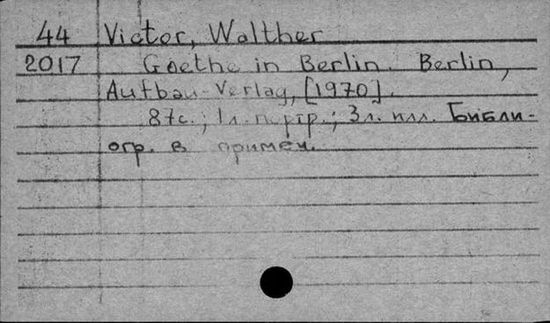 44 Victor, Walther
2017 Goethe in Berlin. Berlin,
Aufbau-Verlag, [1970].
87с.; 1л. портр.; 3л. илл. Библи-
огр. в примеч.